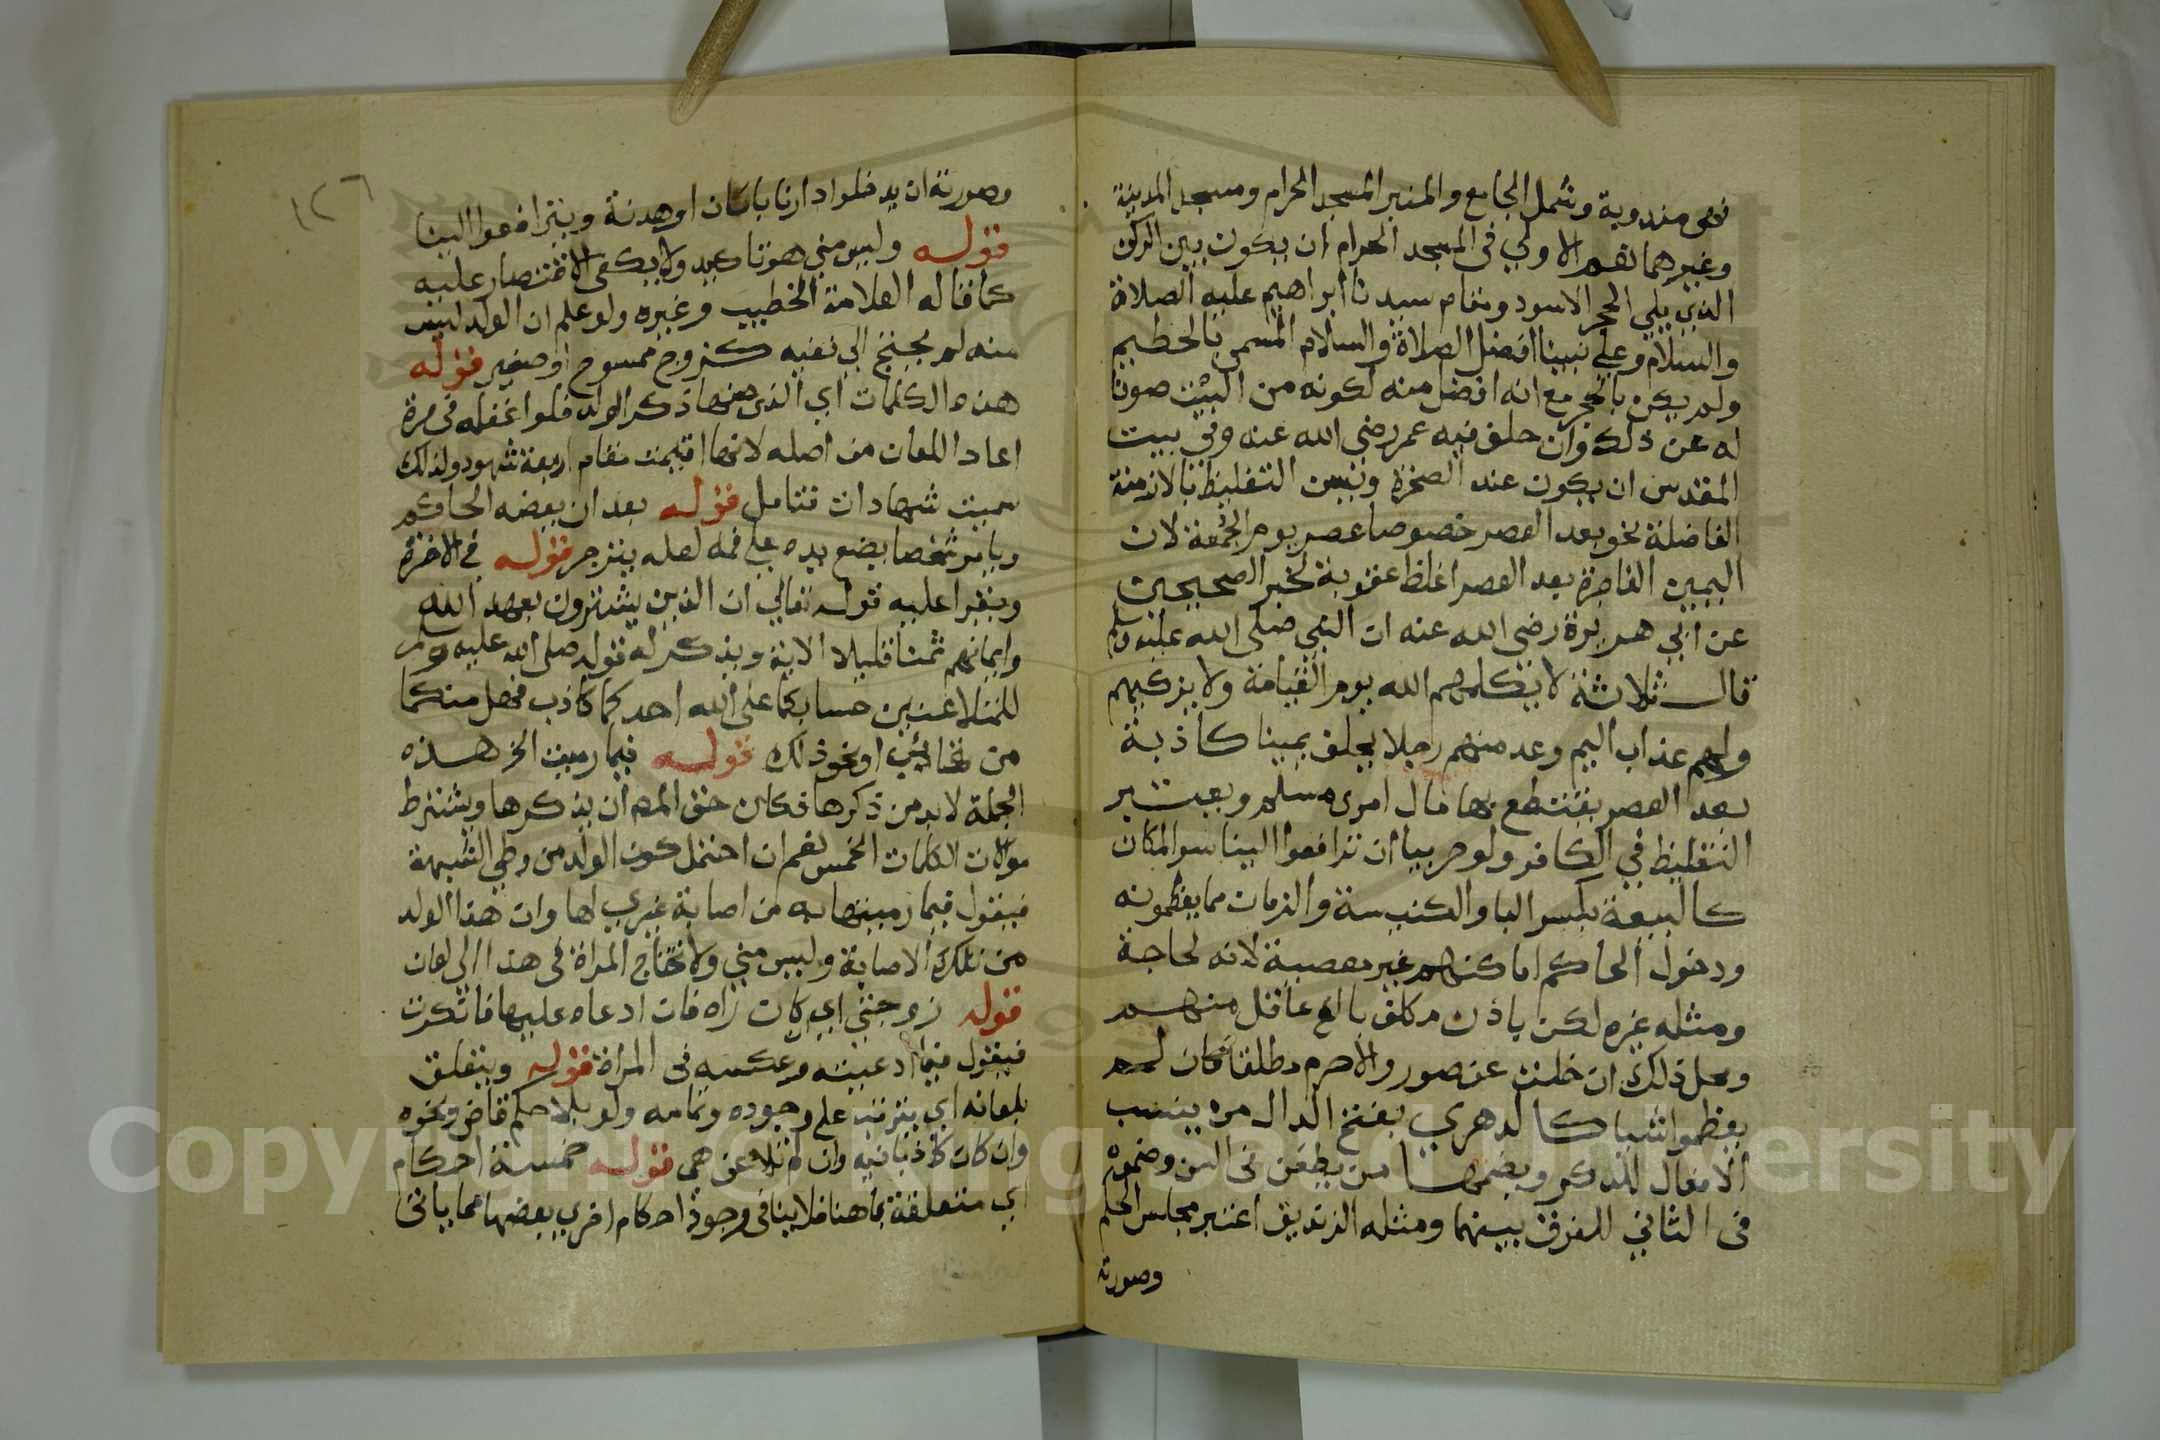 فهى مندوبة وشمل الجامع والمنبر المسجد الحرام ومسجد المدينة
وغيرهما نعم الاولي فى المسجد الحرام ان يكون بين الركن
الذي يلي الحجر الاسود ومقام سيدنا ابراهيم عليه الصلاة
والسلام وعلي نبينا افضل الصلاة والسلام المسمي بالحطيم
ولم يكن بالحجر مع انه افضل منه لكونه من البيت صونا
له عن ذلك وان حلف فيه عمر رضى الله عنه وفى بيت
المقدس ان يكون عند الصخرة وتسن التغليظ بالازمنة
الفاضلة نحو بعد العصر خصوصا عصر يوم الجمعة لان
اليمين الفاجرة بعد العصر اغلظ عقوبة لخبر الصحيحين
عن ابي هريرة رضى الله عنه ان النبي صلى الله عليه وسلم
قال ثلاثة لا يكلمهم الله يوم القيامة ولا يزكيهم
ولهم عذاب اليم وعد منهم رجلا يحلف يمينا كاذبة
بعد العصر يقتطع بها مال امرى مسلم ويعتبر
التغليظ في الكافر ولو حربيا ان ترافعوا الينا سوا المكان
كالبيعة بكسر البا والكنيسة والزمان مما يعظمونه
ودخول الحاكم اماكنهم غير معصية لانه لحاجة
ومثله غيره لكن باذن مكلف بالغ عاقل منهم
ومحل ذلك ان خلت عن صور والا حرم مطلقا فان لم
يعظموا شيا كالدهري بفتح الدال مره ينسب
الافعال للدكر وبضمها من يطعن فى السن وضموه
فى الثاني للفرق بينهما ومثله الزنديق اعتبر مجلس الحكم
وصورته
وصورته ان يدخلوا دارنا بامان او هدنة ويترافعوا الينا
قوله وليس مني هو تاكيد ولا يكفى الاقتصار عليه
كما قاله العلامة الخطيب وغيره ولو علم ان الولد ليس
منه لم يحتج الي نفيه كزوج ممسوح او صغير قوله
هذه الكلمات اي الذى منها ذكر الولد فلو اغفله فى مرة
اعاد اللعان من اصله لانها اقيمت مقام اربعة شهود ولذلك
سميت شهادات فتامل قوله بعد ان يعضه الحاكم
ويامر شخصا يضع يده على فمه لعله ينزجر قوله في الاخرة
ويقرا عليه قوله تعالي ان الذين يشترون بعهد الله
وايمانهم ثمنا قليلا الاية ويذكر له قوله صلى الله عليه وسلم
للمتلاعنين حسابكما على الله احدكما كاذب فهل منكما
من تائب او نحو ذلك قوله فيما رميت الخ هذه
الجملة لابد من ذكرها فكان حق المص ان يذكرها ويشترط
موالات الكلمات الخمس نعم ان احتمل كون الولد من وطي الشبهة
فيقول فيما رميتها به من اصابة غيري لها وان هذا الولد
من تلك الاصابة وليس مني ولا تحتاج المراة فى هذا الى لعان
قوله زوجتي اي كان زاه فان ادعاه عليها فانكرت
فيقول فيما ادعيته وعكسه فى المراة قوله ويتعلق
بلعانه اي يترتب على وجوده وتمامه ولو بلا حكم قاض ونحوه
وان كان كاذبا فيه وان لم تلاعن هى قوله خمسة احكام
اي متعلقة بما هنا فلا ينافى وجود احكام اخري بعضها مما ياتى
١٢٦
Copyright © King Saud University